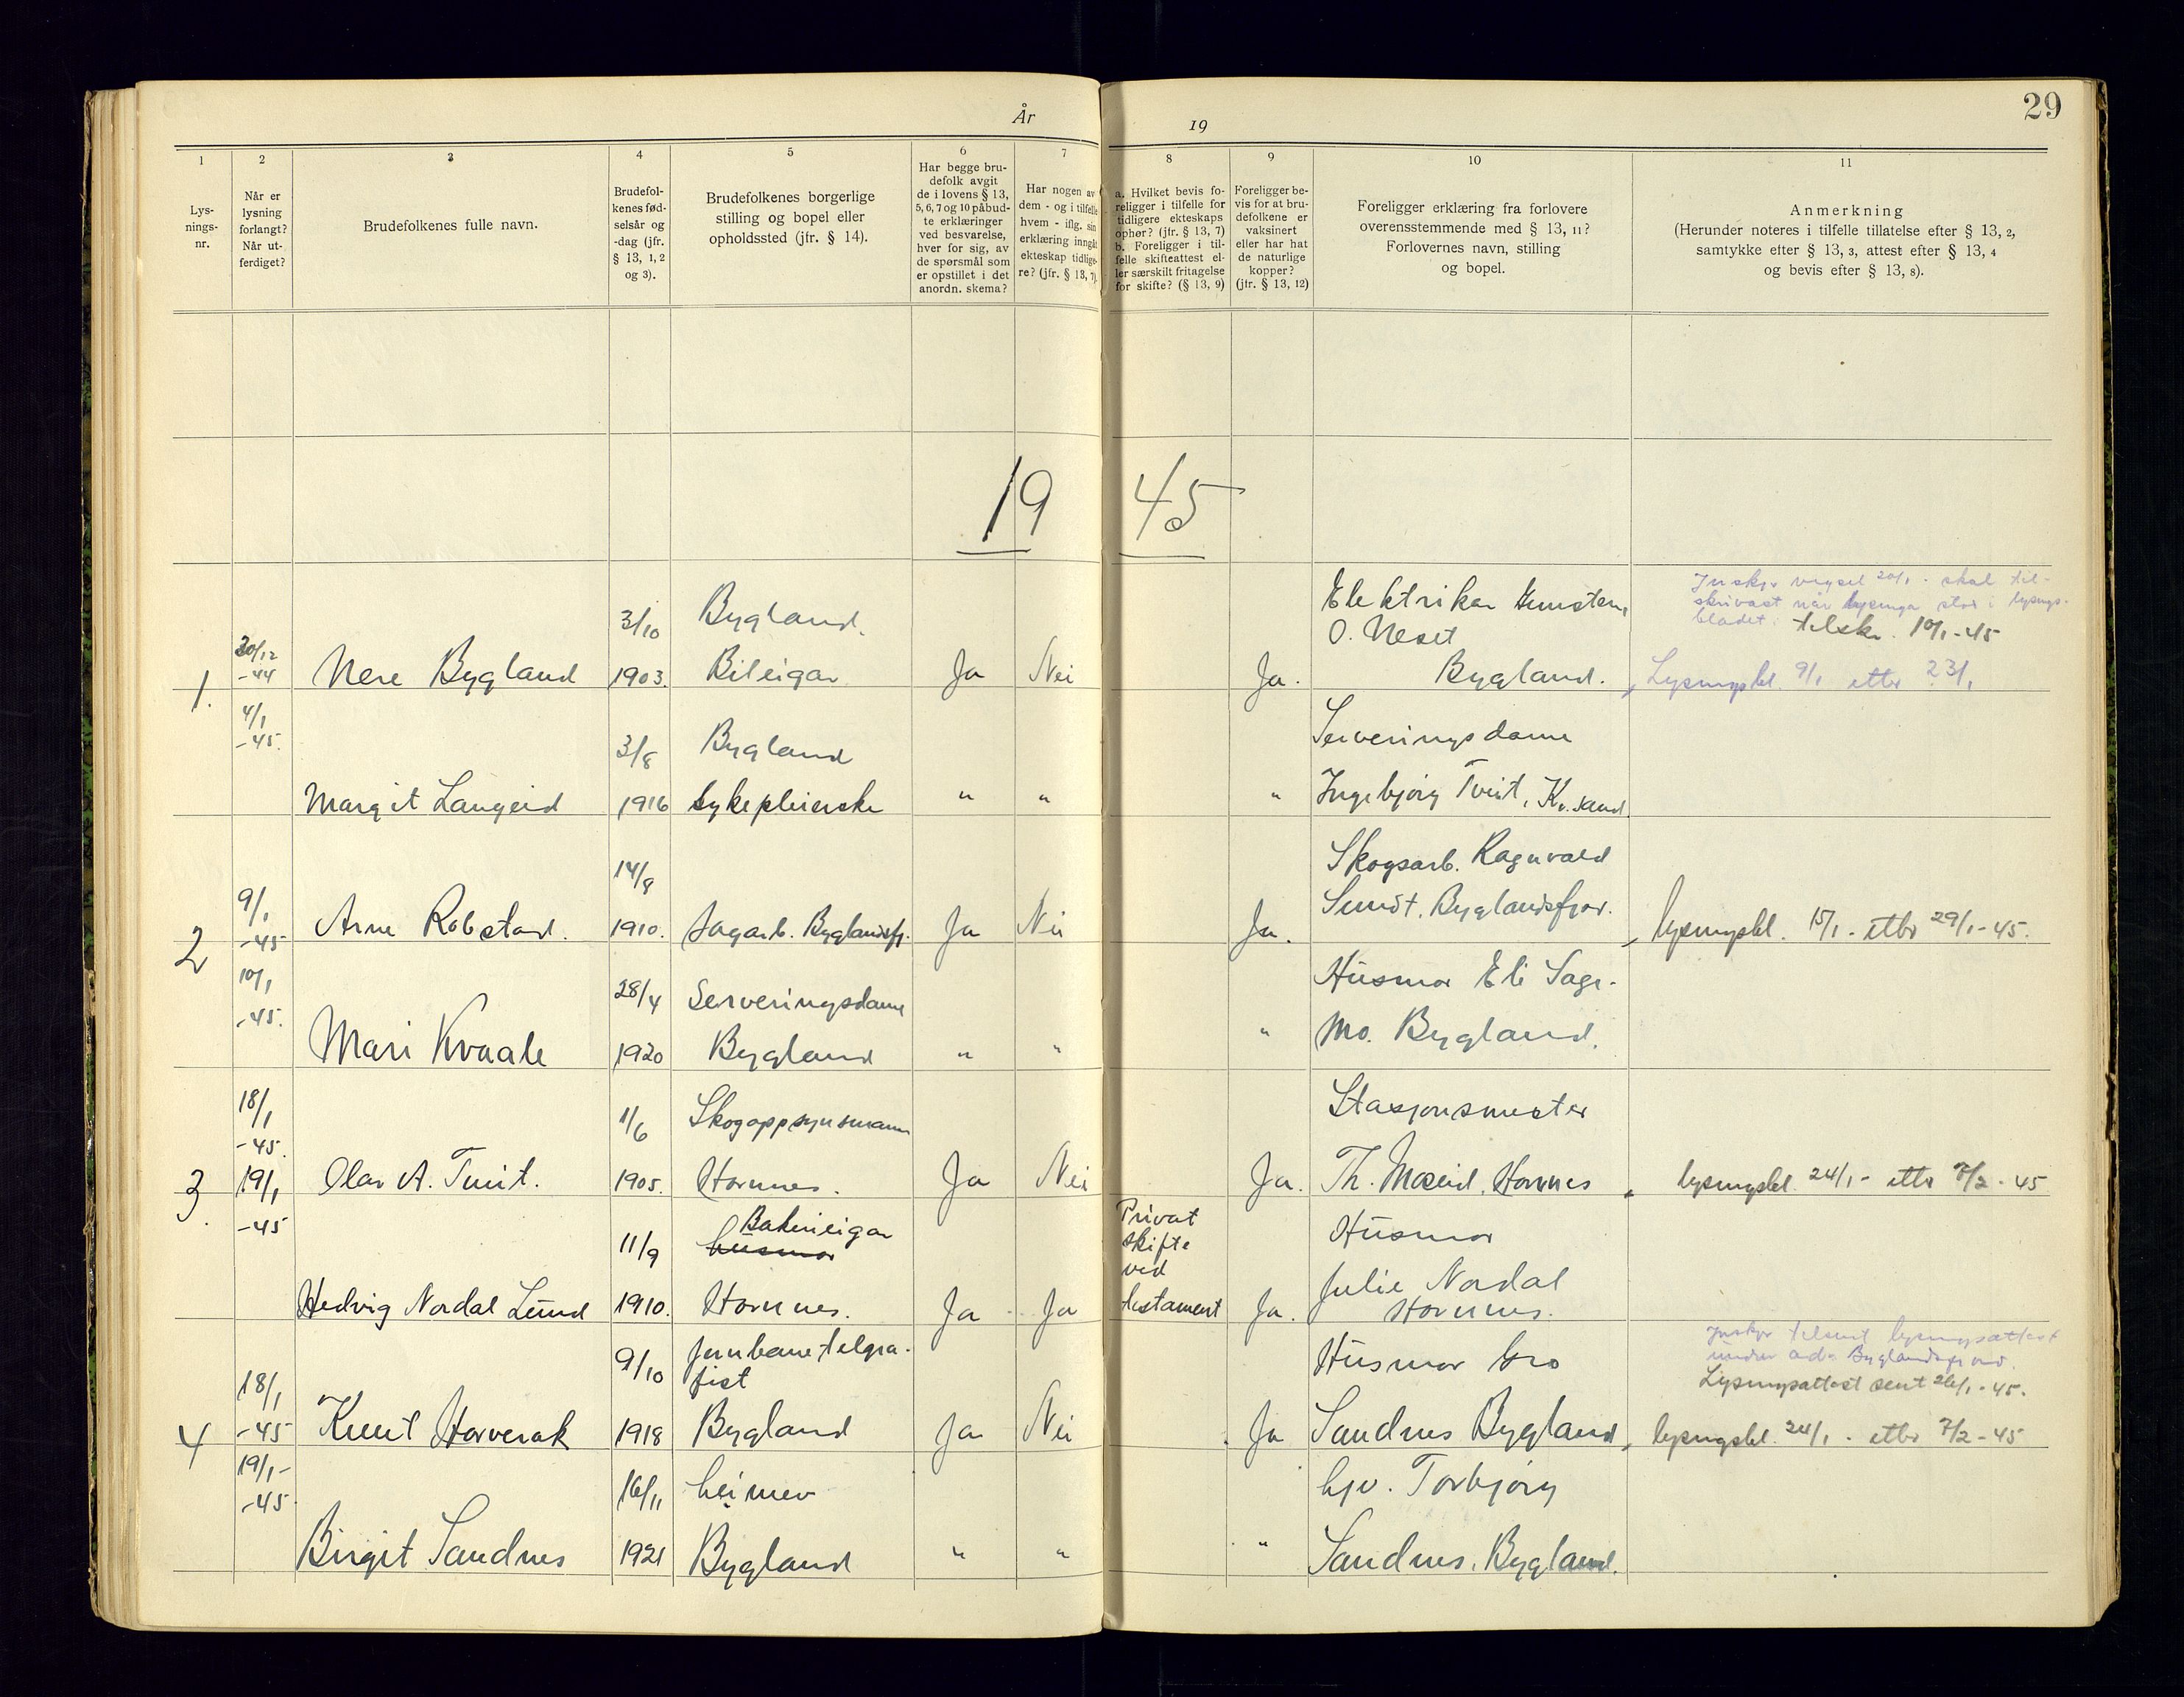 År
19
29
1
Lys-
nings-
nr.
2
Når er
lysning
forlangt?
Når ut-
ferdiget?
3
Brudefolkenes fulle navn.
4
Brudefol-
kenes fød-
selsår og
-dag (jfr.
§ 13, 1, 2
og 3).
5
Brudefolkenes borgerlige
stilling og bopel eller
opholdssted (jfr. § 14).
6
Har begge bru-
defolk avgit
de i lovens § 13,
5, 6, 7 og 10 påbud-
te erklæringer
ved besvarelse,
hver for sig, av
de spørsmål som
er opstillet i det
anordn. skema?
7
Har nogen av
dem - og i tilfelle
hvem - iflg. sin
erklæring inngåt
ekteskap tidlige-
re? (jfr. § 13, 7).
8
a. Hvilket bevis fo-
religger i tilfelle for
tidligere ekteskaps
ophør? (jfr. § 13, 7)
b. Foreligger i til-
felle skifteattest el-
ler særskilt fritagelse
for skifte? (§ 13, 9)
9
Foreligger be-
vis for at bru-
defolkene er
vaksinert
eller har hat
de naturlige
kopper?
(jfr. § 13, 12)
10
Foreligger erklæring fra forlovere
overensstemmende med § 13, 11?
Forlovernes navn, stilling
og bopel.
11
Anmerkning
(Herunder noteres i tilfelle tillatelse efter § 13, 2,
samtykke efter § 13, 3, attest efter § 13, 4
og bevis efter § 13, 8).
19 45
1.
30/12
-44
4/1
-45.
Nere Bygland
3/10
1903.
Bygland.
Bileigar
Ja
Nei
Ja.
Elektriker Gunstein
O. Neset
Bygland.
skal til-
skrivast når lysinga står i lysings-
bladet. tilskr. 10/1-45
Lysingsbl. 9/1 etter 23/1
Margit Langeid
3/8
1916
Bygland
Sykepleierske
"
"
"
Serveringsdame
Ingebjørg Tveit, Kr.sand.
2
9/1
-45
10/1
-45.
Arne Robstad.
14/8
1910.
Sagarb. Byglandsfj.
Ja
Nei
Ja.
Skogsarb. Ragnvald
Sundt. Byglandsfjor.
lysingsbl. 15/1 - etter 29/1-45.
Mari Kvaale
28/4
1920
Serveringsdame
Bygland
"
"
"
Husmor Eli Sage-
Mo. Bygland.
3.
18/1
-45.
19/1
-45
Olav A. Tveit.
1/6
1905.
Skogoppsynsmann
Hornnes.
Ja
Nei
Ja.
Stasjonsmester
Th. Moseid, Hornnes
lysingsbl. 24/1 - etter 7/2 - 45
Hedvig Nordal Lund
11/9
1910.
Bakerieigar
husmor
Hornnes.
Ja
Ja
Privat
skifte
ved
testament
Ja.
Husmor
Julie Nordal
Hornnes.
4
18/1
-45
19/1-
-45.
Knut Horverak
9/10
1918
Jernbanetelgra-
fist
Bygland
Ja
Nei
Ja
Husmor Gro
Sandnes Bygland
lysingsattest
under adr. Byglandsfjord.
Lysingsattest sent 26/1-45.
lysingsbl. 24/1 - etter 7/2-45
Birgit Sandnes
16/11
1921
heimev
Bygland
"
"
"
hjv. Torbjørg
Sandnes, Bygland.